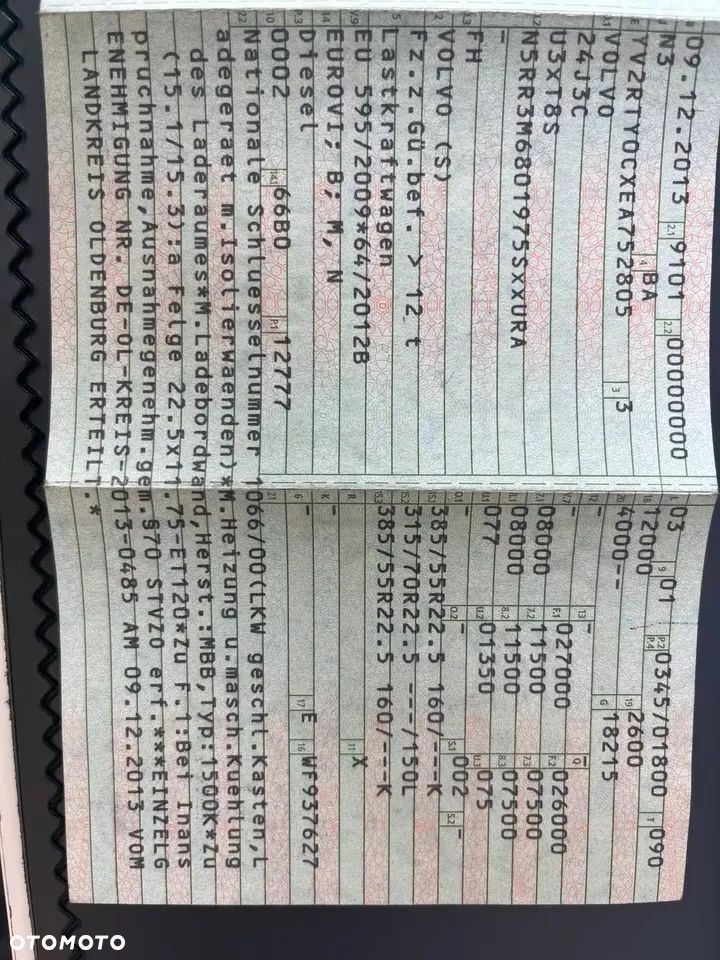 09.12.2013 2.1 9101 2.2 000000000
J N3 4 BA
E YV2RTY0CXEA752805 3 3
D.1 VOLVO
24J3C
U3XT8S
D.2 N5RR3M6801975SXXURA
-
D.3 FH
2 VOLVO (S)
5 Fz.z.Gü.bef. > 12 t
Lastkraftwagen
V.9 EU 595/2009*64/2012B
14 EUROVI; B; M, N
P.3 Diesel
10 0002 14.1 66B0 P.1 12777
22 Nationale Schluesselnummer 1066/00(LKW geschl.Kasten,L
adegeraet m.Isolierwaenden)*M.Heizung u.masch.Kuehlung
des Laderaumes*M.Ladebordwand,Herst.:MBB,Typ:1500K*Zu
(15.1/15.3):a Felge 22.5x11.75-ET120*Zu F.1:Bei Inans
pruchnahme,Ausnahmegenehm.gem.§70 STVZO erf.***EINZELG
ENEHMIGUNG NR. DE-OL-KREIS-2013-0485 AM 09.12.2013 VOM
LANDKREIS OLDENBURG ERTEILT.*
L 03 9 01 P.2 P.4 0345/01800 T 090
18 12000 19 2600
20 4000-- G 18215
12 - 13 - Q -
V.7 - F.1 027000 F.2 026000
7.1 08000 7.2 11500 7.3 07500
8.1 08000 8.2 11500 8.3 07500
U.1 077 U.2 01350 U.3 075
O.1 - O.2 - S.1 002 S.2 -
15.1 385/55R22.5 160/---K
15.2 315/70R22.5 ---/150L
15.3 385/55R22.5 160/---K
R - 11 X
K -
6 - 17 E 16 WF937627
21
OTOMOTO